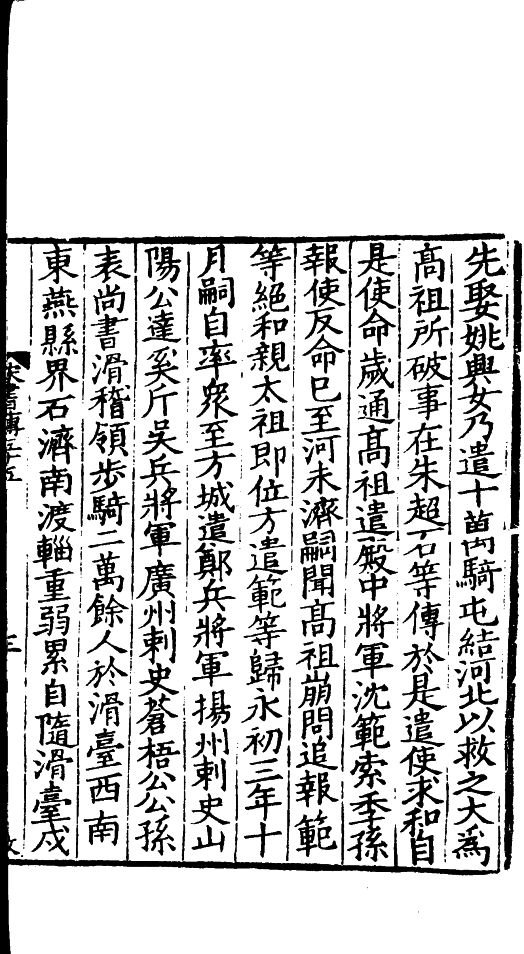 先娶姚興女乃遣十萬騎屯結河北以救之大爲
髙祖所破事在朱超石等傳於是遣使求和自
是使命歲通髙祖遣殿中將軍沈範索季孫
報使反命巳至河未濟嗣聞髙祖崩問追報範
等絕和親太祖即位方遣範等歸永初三年十
月嗣自率衆至方城遣鄭兵將軍揚州刺史山
陽公達奚斤吳兵將軍廣州刺史蒼梧公公孫
表尚書滑稽領步騎二萬餘人於滑臺西南
東燕縣界石濟南渡輜重弱累自隨滑臺戍
宋書傳五十五
三